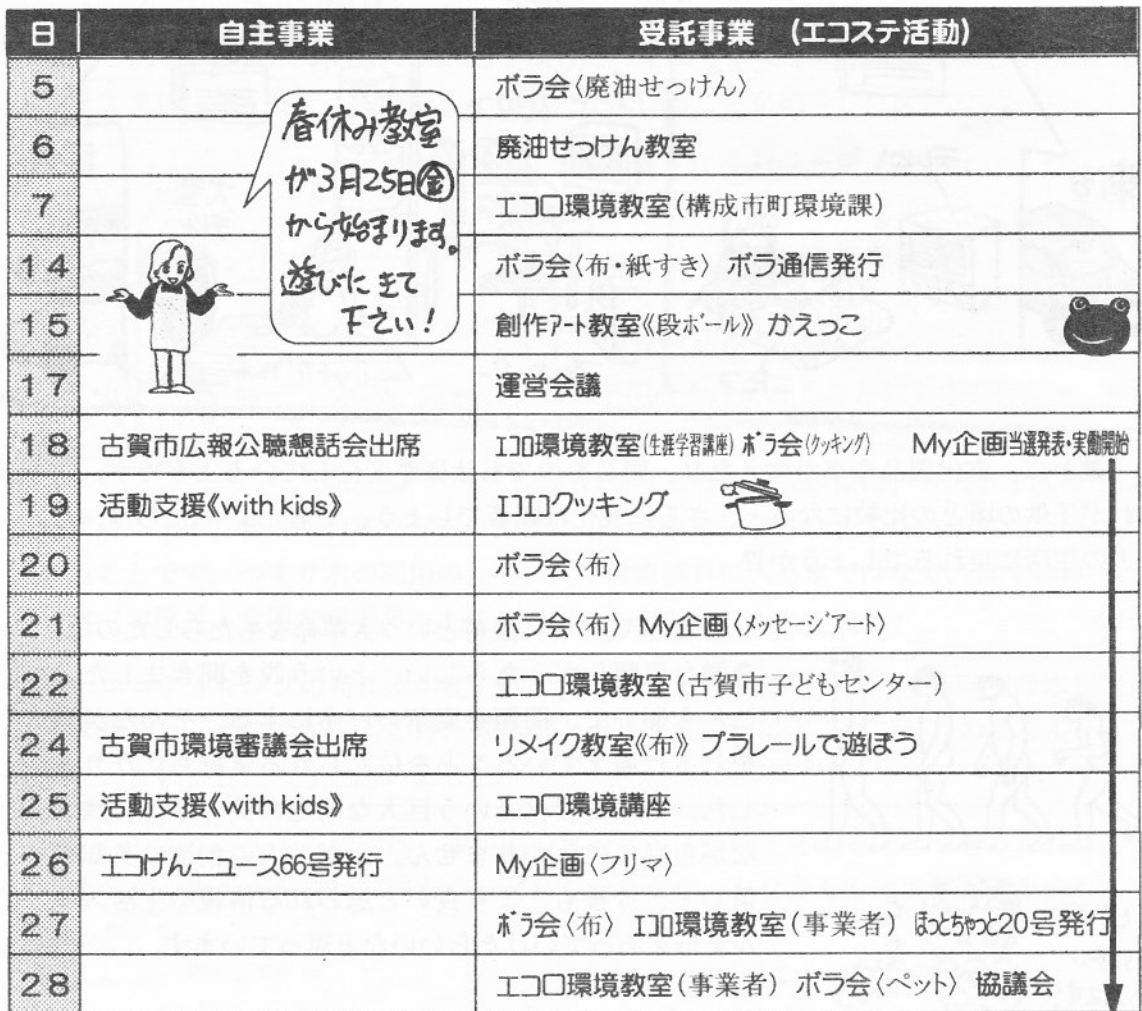 日 自主事業 受託事業 (エコステ活動)
5 ボラ会〈廃油せっけん〉
春休み教室
が3月25日㊎
から始まります。
遊びにきて
下さい!
6 廃油せっけん教室
7 エコロ環境教室(構成市町環境課)
14 ボラ会〈布・紙すき〉 ボラ通信発行
15 創作アート教室《段ボール》 かえっこ
17 運営会議
18 古賀市広報公聴懇話会出席 エコロ環境教室(生涯学習講座) ボラ会〈クッキング〉 My企画当選発表・実働開始
19 活動支援《with kids》 エコエコクッキング
20 ボラ会〈布〉
21 ボラ会〈布〉 My企画〈メッセージアート〉
22 エコロ環境教室(古賀市子どもセンター)
24 古賀市環境審議会出席 リメイク教室《布》 プラレールで遊ぼう
25 活動支援《with kids》 エコロ環境講座
26 エコけんニュース66号発行 My企画〈フリマ〉
27 ボラ会〈布〉 エコロ環境教室(事業者) ほっとちゃっと20号発行
28 エコロ環境教室(事業者) ボラ会〈ペット〉 協議会